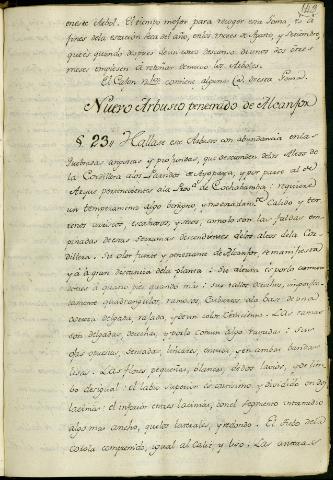 149
en este Arbol. El tiempo mejor para recoger esta Goma, es a
fines de la estacion seca del año, en los meses de Agosto, y Setiembre,
que es quando despues de un corto descanso de unos dos ó tres
meses empiezan à retoñar de nuevo los Arboles.
El Cajon contiene alguna de esta Goma.
Nuevo Arbusto penetrado de Alcanfor
§. 23. Hallase este Arbusto con abundancia en las
Quebradas angostas y profundas, que descienden de los Altos de
la Cordillera a los Partidos de Ayopaya, y por parte al de
Arque pertenecientes a la Prov.ª de Cochabamba: requiere
un temperamento algo benigno, y moderadam.te Calido y ter-
renos aridos, escabrosos, y secos, como lo son las faldas em-
pinadas de estas Serranias descendientes de los altos de la Cor-
dillera. Su olor fuerte y penetrante de Alcanfor, se manifiesta
yá à gran distancia de la planta: Su altura es por lo comun
de tres à quatro pies quando más: sus tallos derechos, imperfec-
tamente quadrangulos, ramosos, Cubiertos a la base de una
corteza delgada, rajada, y de un color Ceniciento. Las ramas
son delgadas, derechas, y por lo comun algo vellosas: Sus
ojas opuestas, sentadas, lineares, enteras, y en ambas bandas
lisas. Las flores pequeñas, blancas, de dos labios, por lim-
bo desigual: el labio superior es cortisimo, y dividido en dos
lacinias: el inferior en tres lacinias, con el segmento intermedio
algo mas ancho, que los laterales, y redondo. El tubo de la
corola comprimido, igual al Caliz, y liso. Las anteras